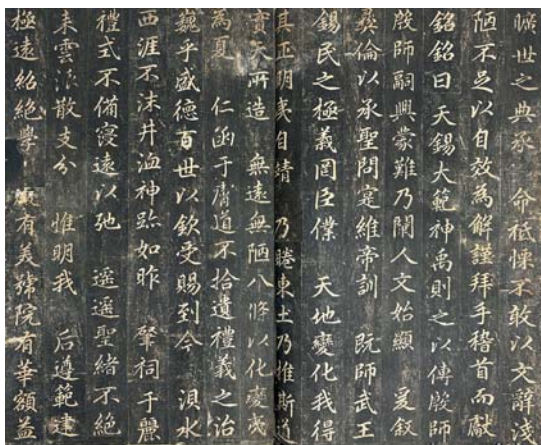 曠世之典承 命祗慄不敢以文辭淺
陋不足以自效為解謹拜手稽首而獻
銘銘曰 天錫大範神禹則之以傳殷師
殷師嗣興蒙難乃闡人文始顯 爰叙
彜倫以承聖問寔維帝訓 既師武王
錫民之極義罔臣僕 天地變化我得
其正明夷自靖 乃睠東土乃惟斯道
實天所造 無遠無陋八條以化變夷
為夏 仁函于膚道不拾遺禮義之治
巍乎盛德百世以欽受賜到今 浿水
西涯不沫井洫神跡如昨 肇祠于麗
禮式不備寖遠以弛 遥遥聖緒不絶
来雲派散支分 惟明我 后遵範建
極遠紹絶學 有美號院有華額益